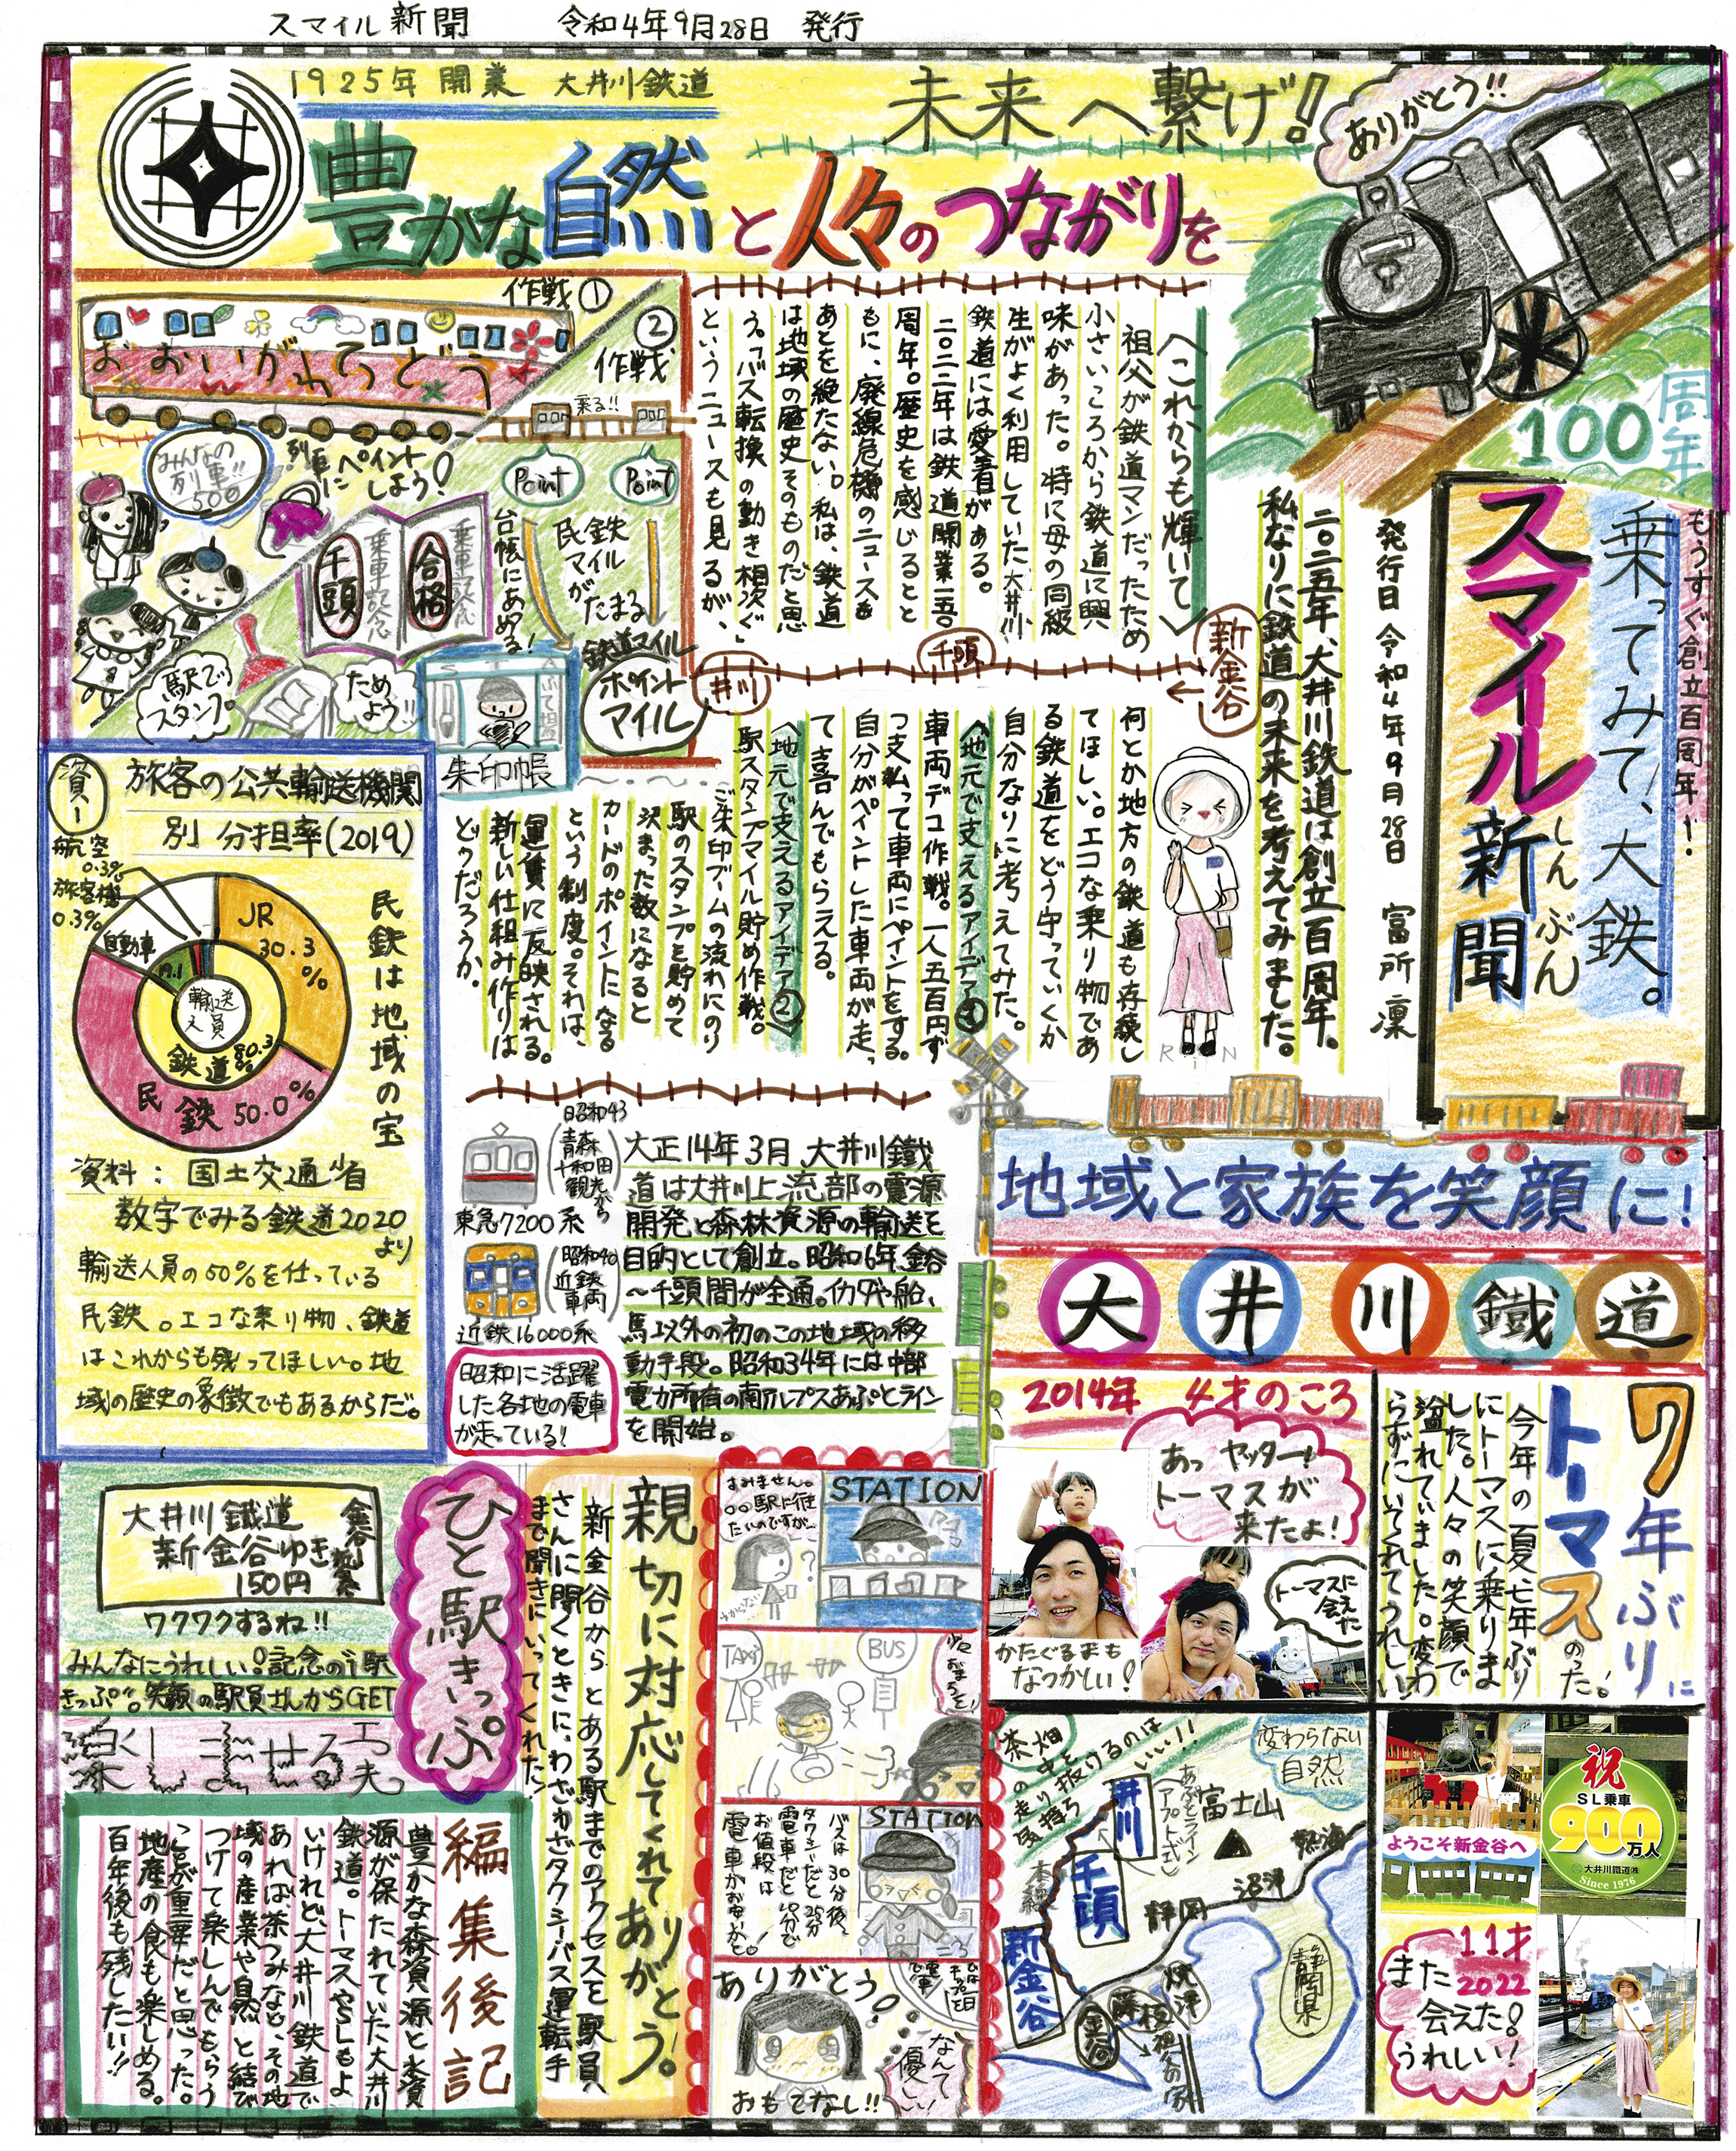 スマイル新聞　令和4年9月28日　発行
1925年 開業　大井川鉄道
未来へ繋げ!
豊かな自然と人々のつながりを
ありがとう!!
100周年
もうすぐ創立百周年!
乗ってみて、大鉄。
スマイル新聞
しんぶん
発行日 令和4年9月28日　富所 凜
二〇二五年、大井川鉄道は創立百周年。
私なりに鉄道の未来を考えてみました。
〈これからも輝いて〉
祖父が鉄道マンだったため
小さいころから鉄道に興
味があった。特に母の同級
生がよく利用していた大井川
鉄道には愛着がある。
二〇二二年は鉄道開業一五〇
周年。歴史を感じるとと
もに、廃線危機のニュースも
あとを絶たない。私は、鉄道
は地域の歴史そのものだと思
う。「バス転換の動き相次ぐ」
というニュースも見るが、
新金谷
千頭
井川
何とか地方の鉄道も存続し
てほしい。エコな乗り物であ
る鉄道をどう守っていくか
自分なりに考えてみた。
〈地元で支えるアイデア①〉
車両デコ作戦。一人五百円ず
つ支払って車両にペイントをする。
自分がペイントした車両が走っ
て喜んでもらえる。
〈地元で支えるアイデア②〉
駅スタンプマイル貯め作戦。
ご朱印ブームの流れにのり
駅のスタンプを貯めて
決まった数になると
カードのポイントになる
という制度。それは、
運賃に反映される。
新しい仕組み作りは
どうだろうか。
RIN
作戦①
②作戦
おおいがわてつどう
みんなの列車!!500
列車にペイントしよう!
乗る!!
Point
Point
民鉄マイルがたまる
台帳にあめる!
鉄道マイル
ポイントマイル
乗車記念
合格
乗車記念
千頭
駅でスタンプ
ためよう!!
朱印帳
資1
旅客の公共輸送機関
別 分担率(2019)
航空
0.3%
旅客機
0.3%
自動車
19.1
JR
30.3
%
輸送人員
鉄道80.3%
民鉄50.0%
民鉄は地域の宝
資料：国土交通省
数字でみる鉄道2020
より
輸送人員の50%を仕っている
民鉄。エコな乗り物、鉄道
はこれからも残ってほしい。地
域の歴史の象徴でもあるからだ。
昭和43
青森
十和田
観光から
東急7200系
昭和40
近鉄
車両
近鉄16000系
昭和に活躍
した各地の電車
が走っている!
大正14年3月 大井川鐵
道は大井川上流部の電源
開発と森林資源の輸送を
目的として創立。昭和6年金谷
～千頭間が全通。イカダや船、
馬以外の初のこの地域の移
動手段。昭和34年には中部
電力所有の南アルプスあぷとライン
を開始。
地域と家族を笑顔に!
大井川鐵道
7年ぶりに
トーマスのった!
今年の夏七年ぶり
にトーマスに乗りま
した。人々の笑顔で
溢れていました。変わ
らずにいてくれてうれしい
2014年　4才のころ
あっ ヤッター!
トーマスが
来たよ!
かたぐるまも
なつかしい!
トーマスに
会えた
ようこそ新金谷へ
祝
SL乗車
900万人
大井川鐵道㈱
Since 1976
11才
2022
また
会えた!
うれしい!
茶畑の中を
走り抜けるのは
気持ちいい!!
変わらない
自然
井川
あぷとライン
(アプト式)
富士山
熱海
千頭
本線
沼津
静岡
新金谷
焼津
金谷
静岡県
大井川鐵道
新金谷ゆき
150円
ワクワクするね!!
みんなにうれしい!記念の“1駅
きっぷ”。笑顔の駅員さんからGET
楽しませる工夫
ひと駅きっぷ
親切に対応してくれてありがとう。
新金谷からとある駅までのアクセスを駅員
さんに聞くときに、わざわざタクシー、バス運転手
まで聞きにいってくれた!
すみません。
〇〇駅に行き
たいのですが…
STATION
TAXI
BUS
STATION
バスは30分後、
タクシーだと25分
電車だと20分で
お値段は
電車がお安いかと。
ありがとう
なんて
優しい
おもてなし!!
編集後記
豊かな森資源と水資
源が保たれていた大井川
鉄道。トマスやSLもよ
いけれど、大井川鉄道で
あれば、茶つみなど、その地
域の産業や自然と結び
つけて楽しんでもらう
ことが重要だと思った。
地産の食も楽しめる。
百年後も残したい!!